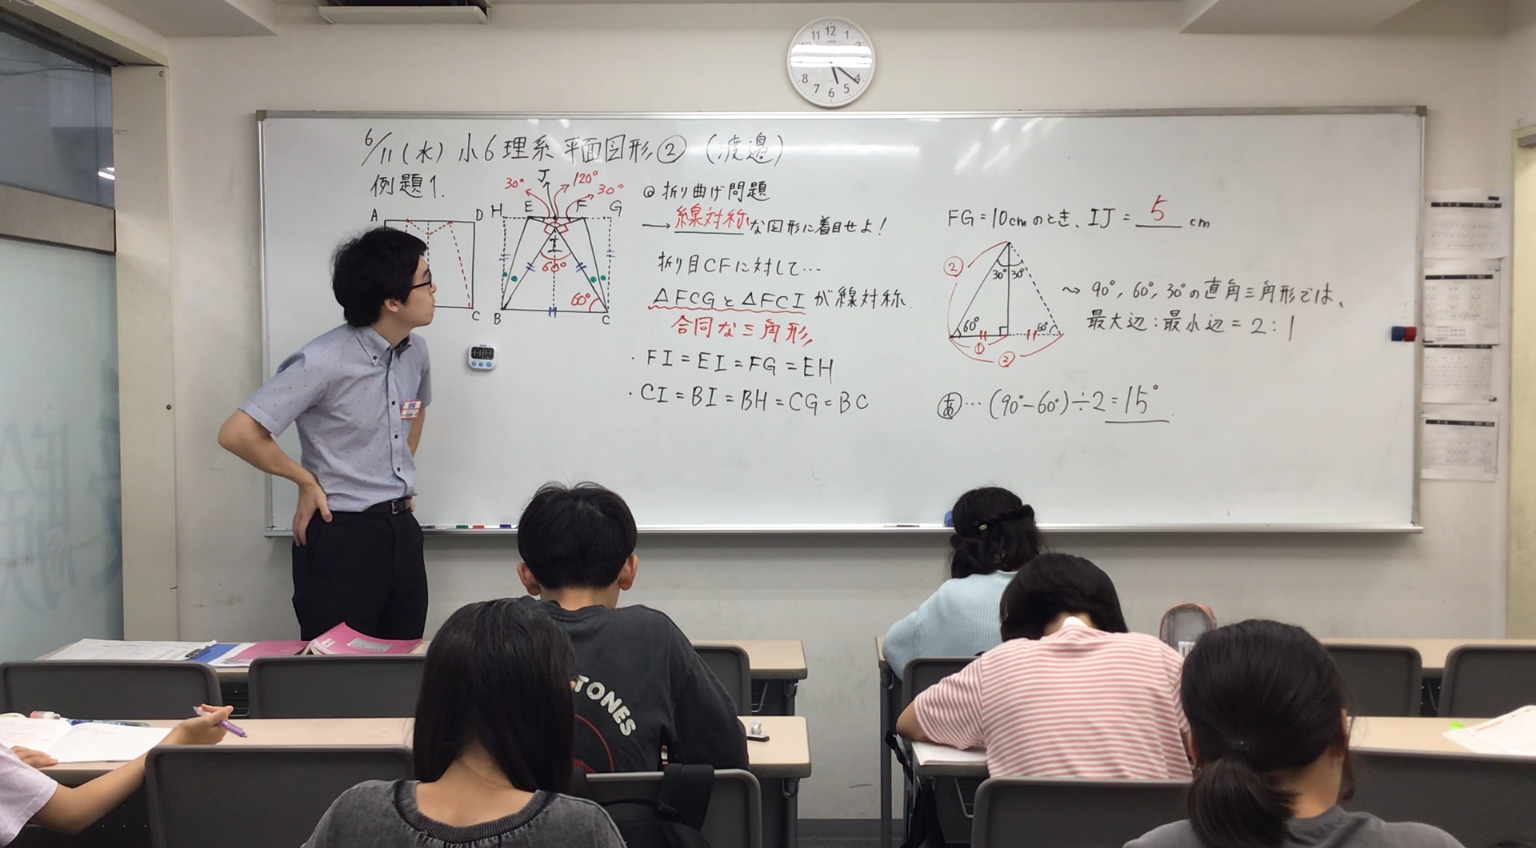 6/11(水) 小6理系 平面図形② (渡邉)
例題1.
A D
C
J
30° 120° 30°
H E F G
I
60°
60°
B C
◎ 折り曲げ問題
→ 線対称な図形に着目せよ!
折り目CFに対して…
△FCGと△FCIが線対称
合同な三角形
・FI=EI=FG=EH
・CI=BI=BH=CG=BC
FG=10cmのとき、IJ= 5 cm
②
30° 30°
60° 60°
①
②
〜 90°, 60°, 30°の直角三角形では、
最大辺:最小辺=2:1
あ…(90°-60°)÷2=15°
11 12 1
8 4
7 6 5
TONES